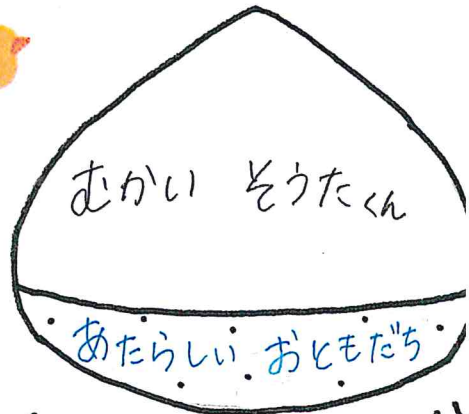 むかい そうたくん
あたらしい おともだち